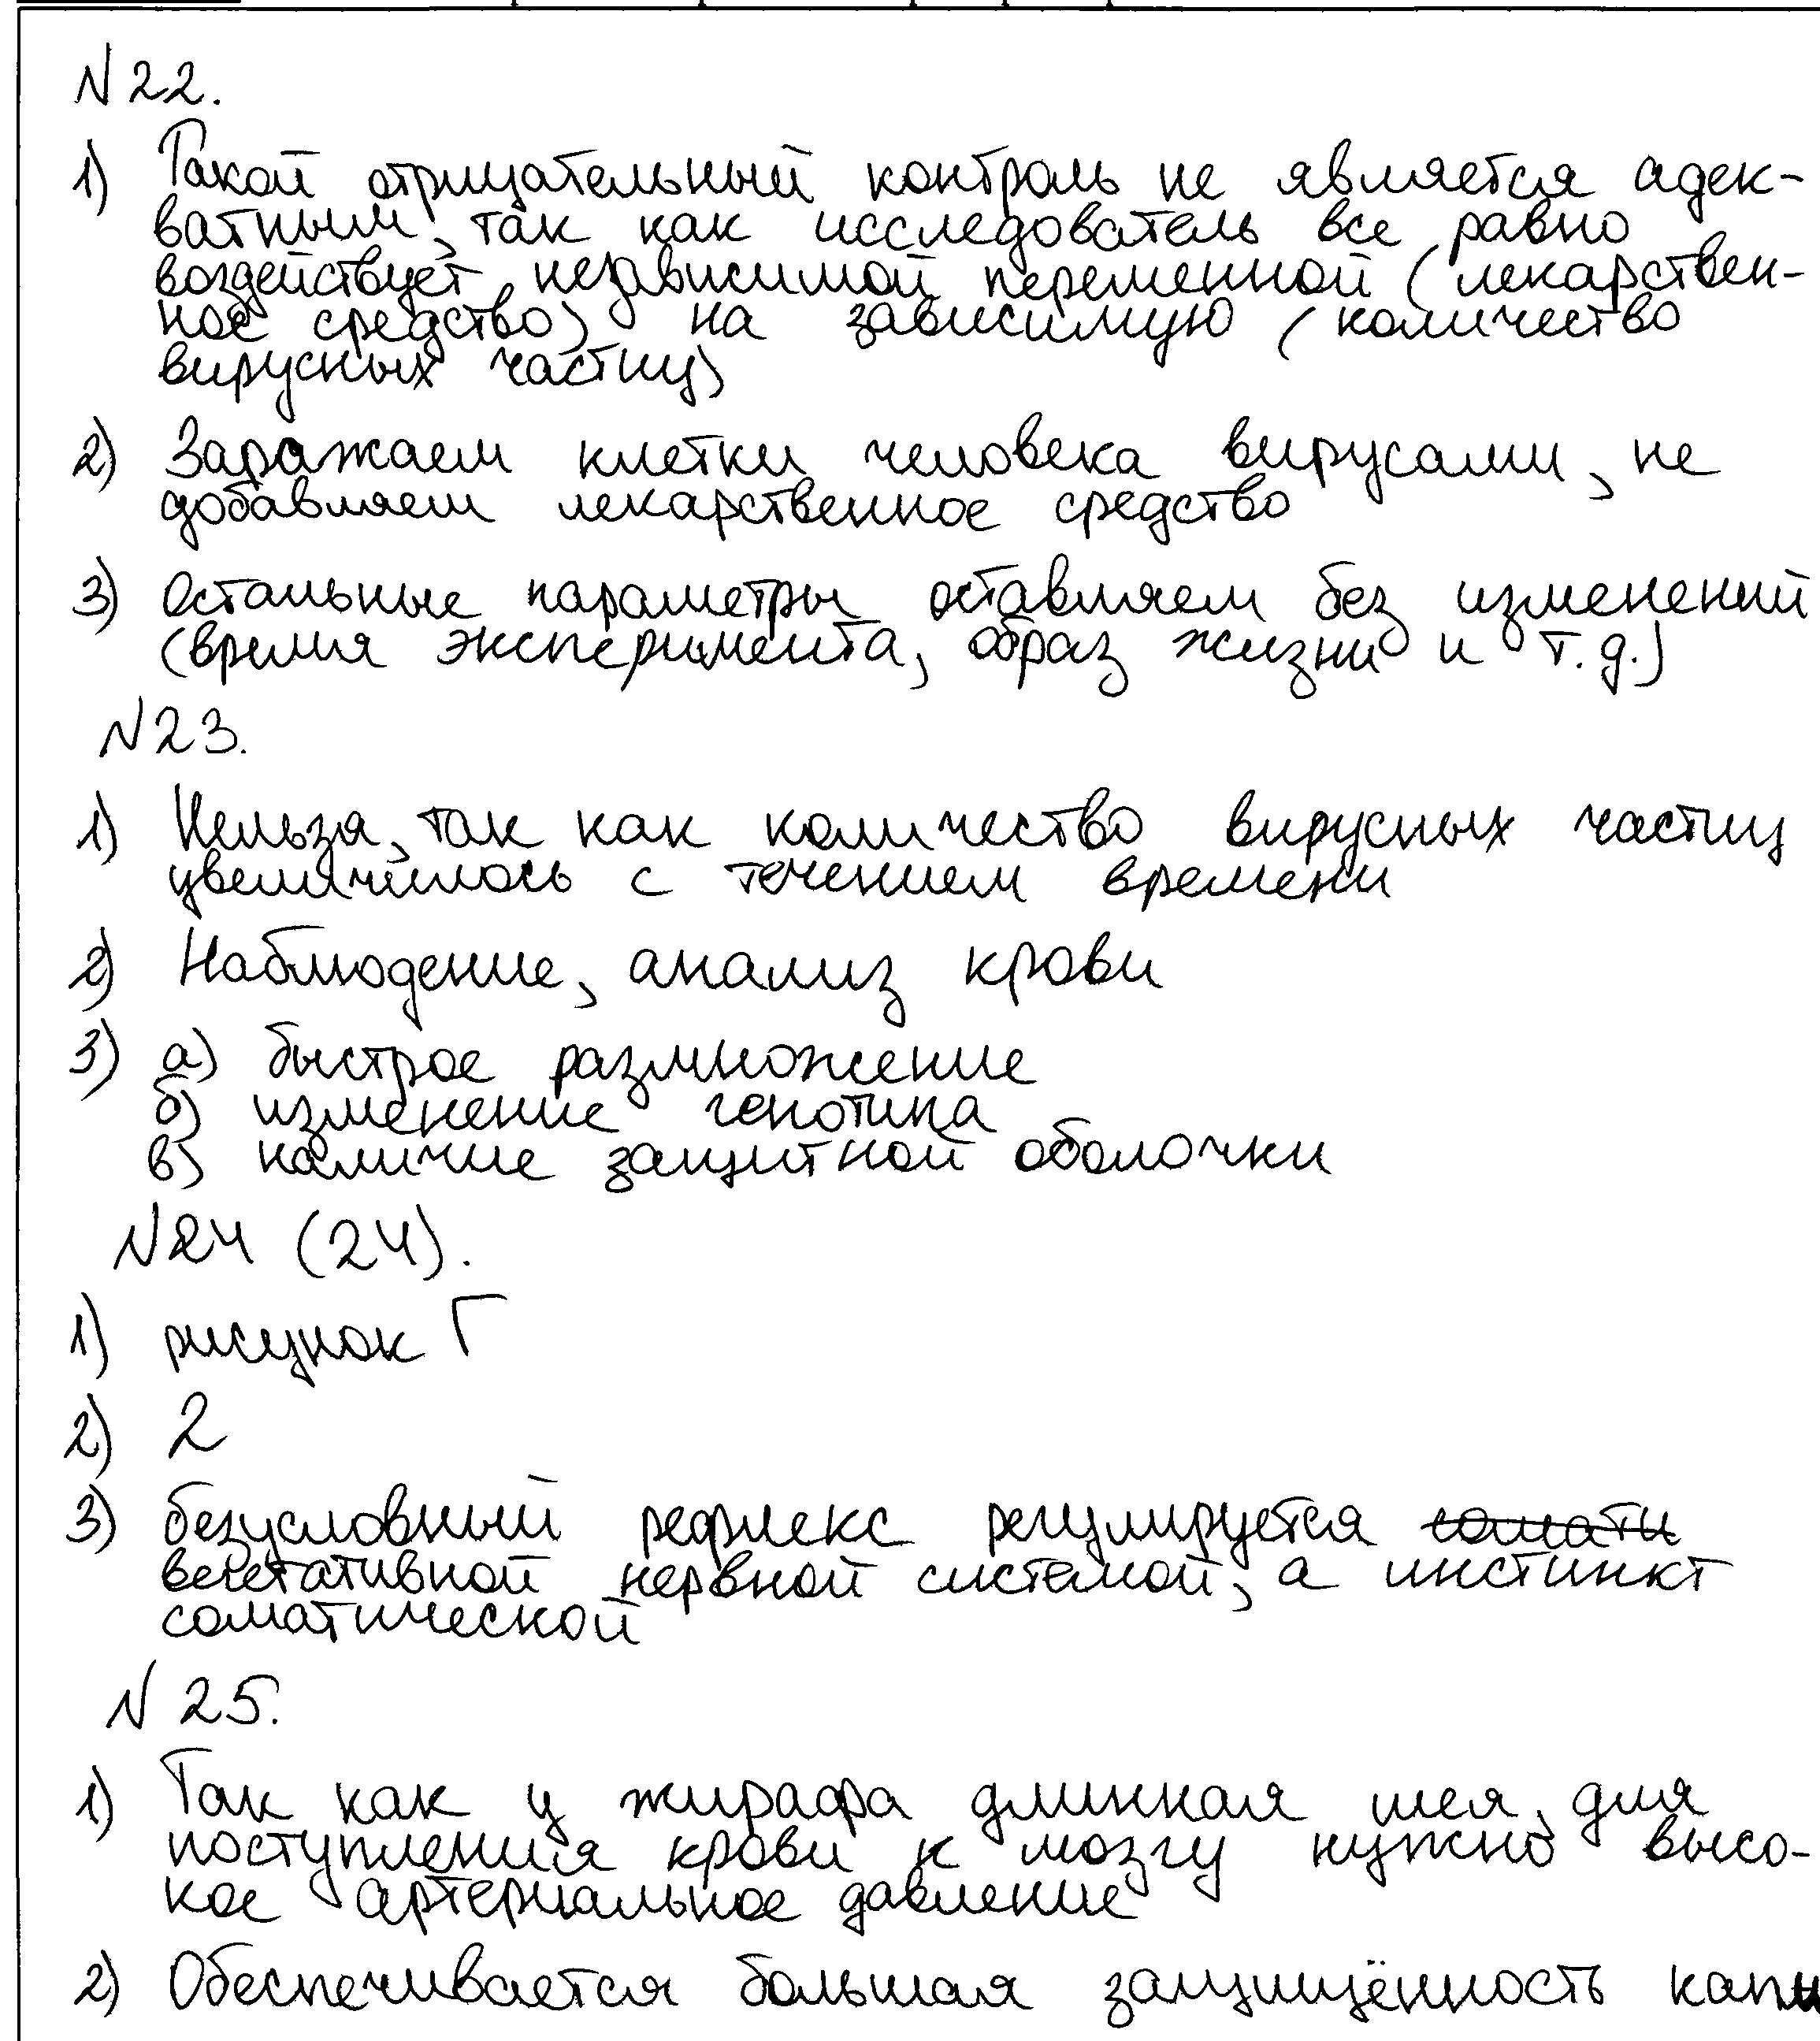 N22.
1) Такой отрицательный контроль не является адек-
ватным, так как исследователь все равно
воздействует независимой переменной (лекарствен-
ное средство) на зависимую (количество
вирусных частиц)
2) Заражаем клетки человека вирусами, не
добавляем лекарственное средство
3) Остальные параметры оставляем без изменений
(время эксперимента, образ жизни и т.д.)
N23.
1) Нельзя, так как количество вирусных частиц
увеличилось с течением времени
2) Наблюдение, анализ крови
3) а) быстрое размножение
б) изменение генотипа
в) наличие защитной оболочки
N24 (24).
1) рисунок Г
2) 2
3) безусловный рефлекс регулируется сомати
вегетативной нервной системой, а инстинкт
соматической
N 25.
1) Так как у жирафа длинная шея, для
поступления крови к мозгу нужно высо-
кое артериальное давление
2) Обеспечивается большая защищённость капи